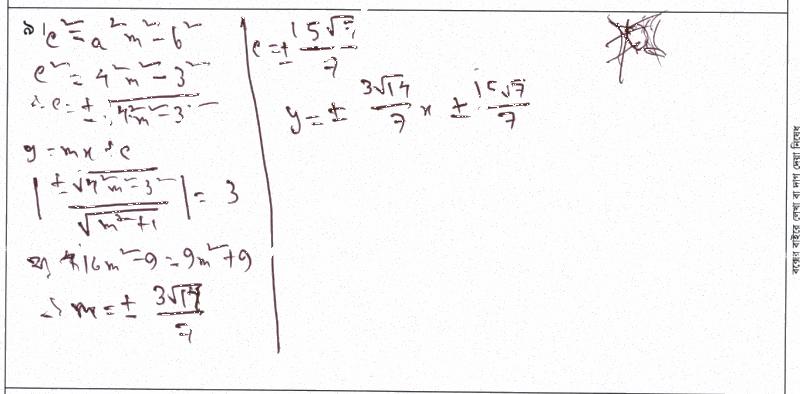 ৯। c² = a²m² - b²
c² = 4²m² - 3²
∴ c = ± √4²m² - 3²
y = mx + c
| ±√4²m² - 3² / √m² + 1 | = 3
বা, 16m² - 9 = 9m² + 9
∴ m = ± 3√14 / 7
c = ± 15√7 / 7
y = ± 3√14 / 7 x ± 15√7 / 7
বক্সের বাইরে লেখা বা দাগ দেয়া নিষেধ